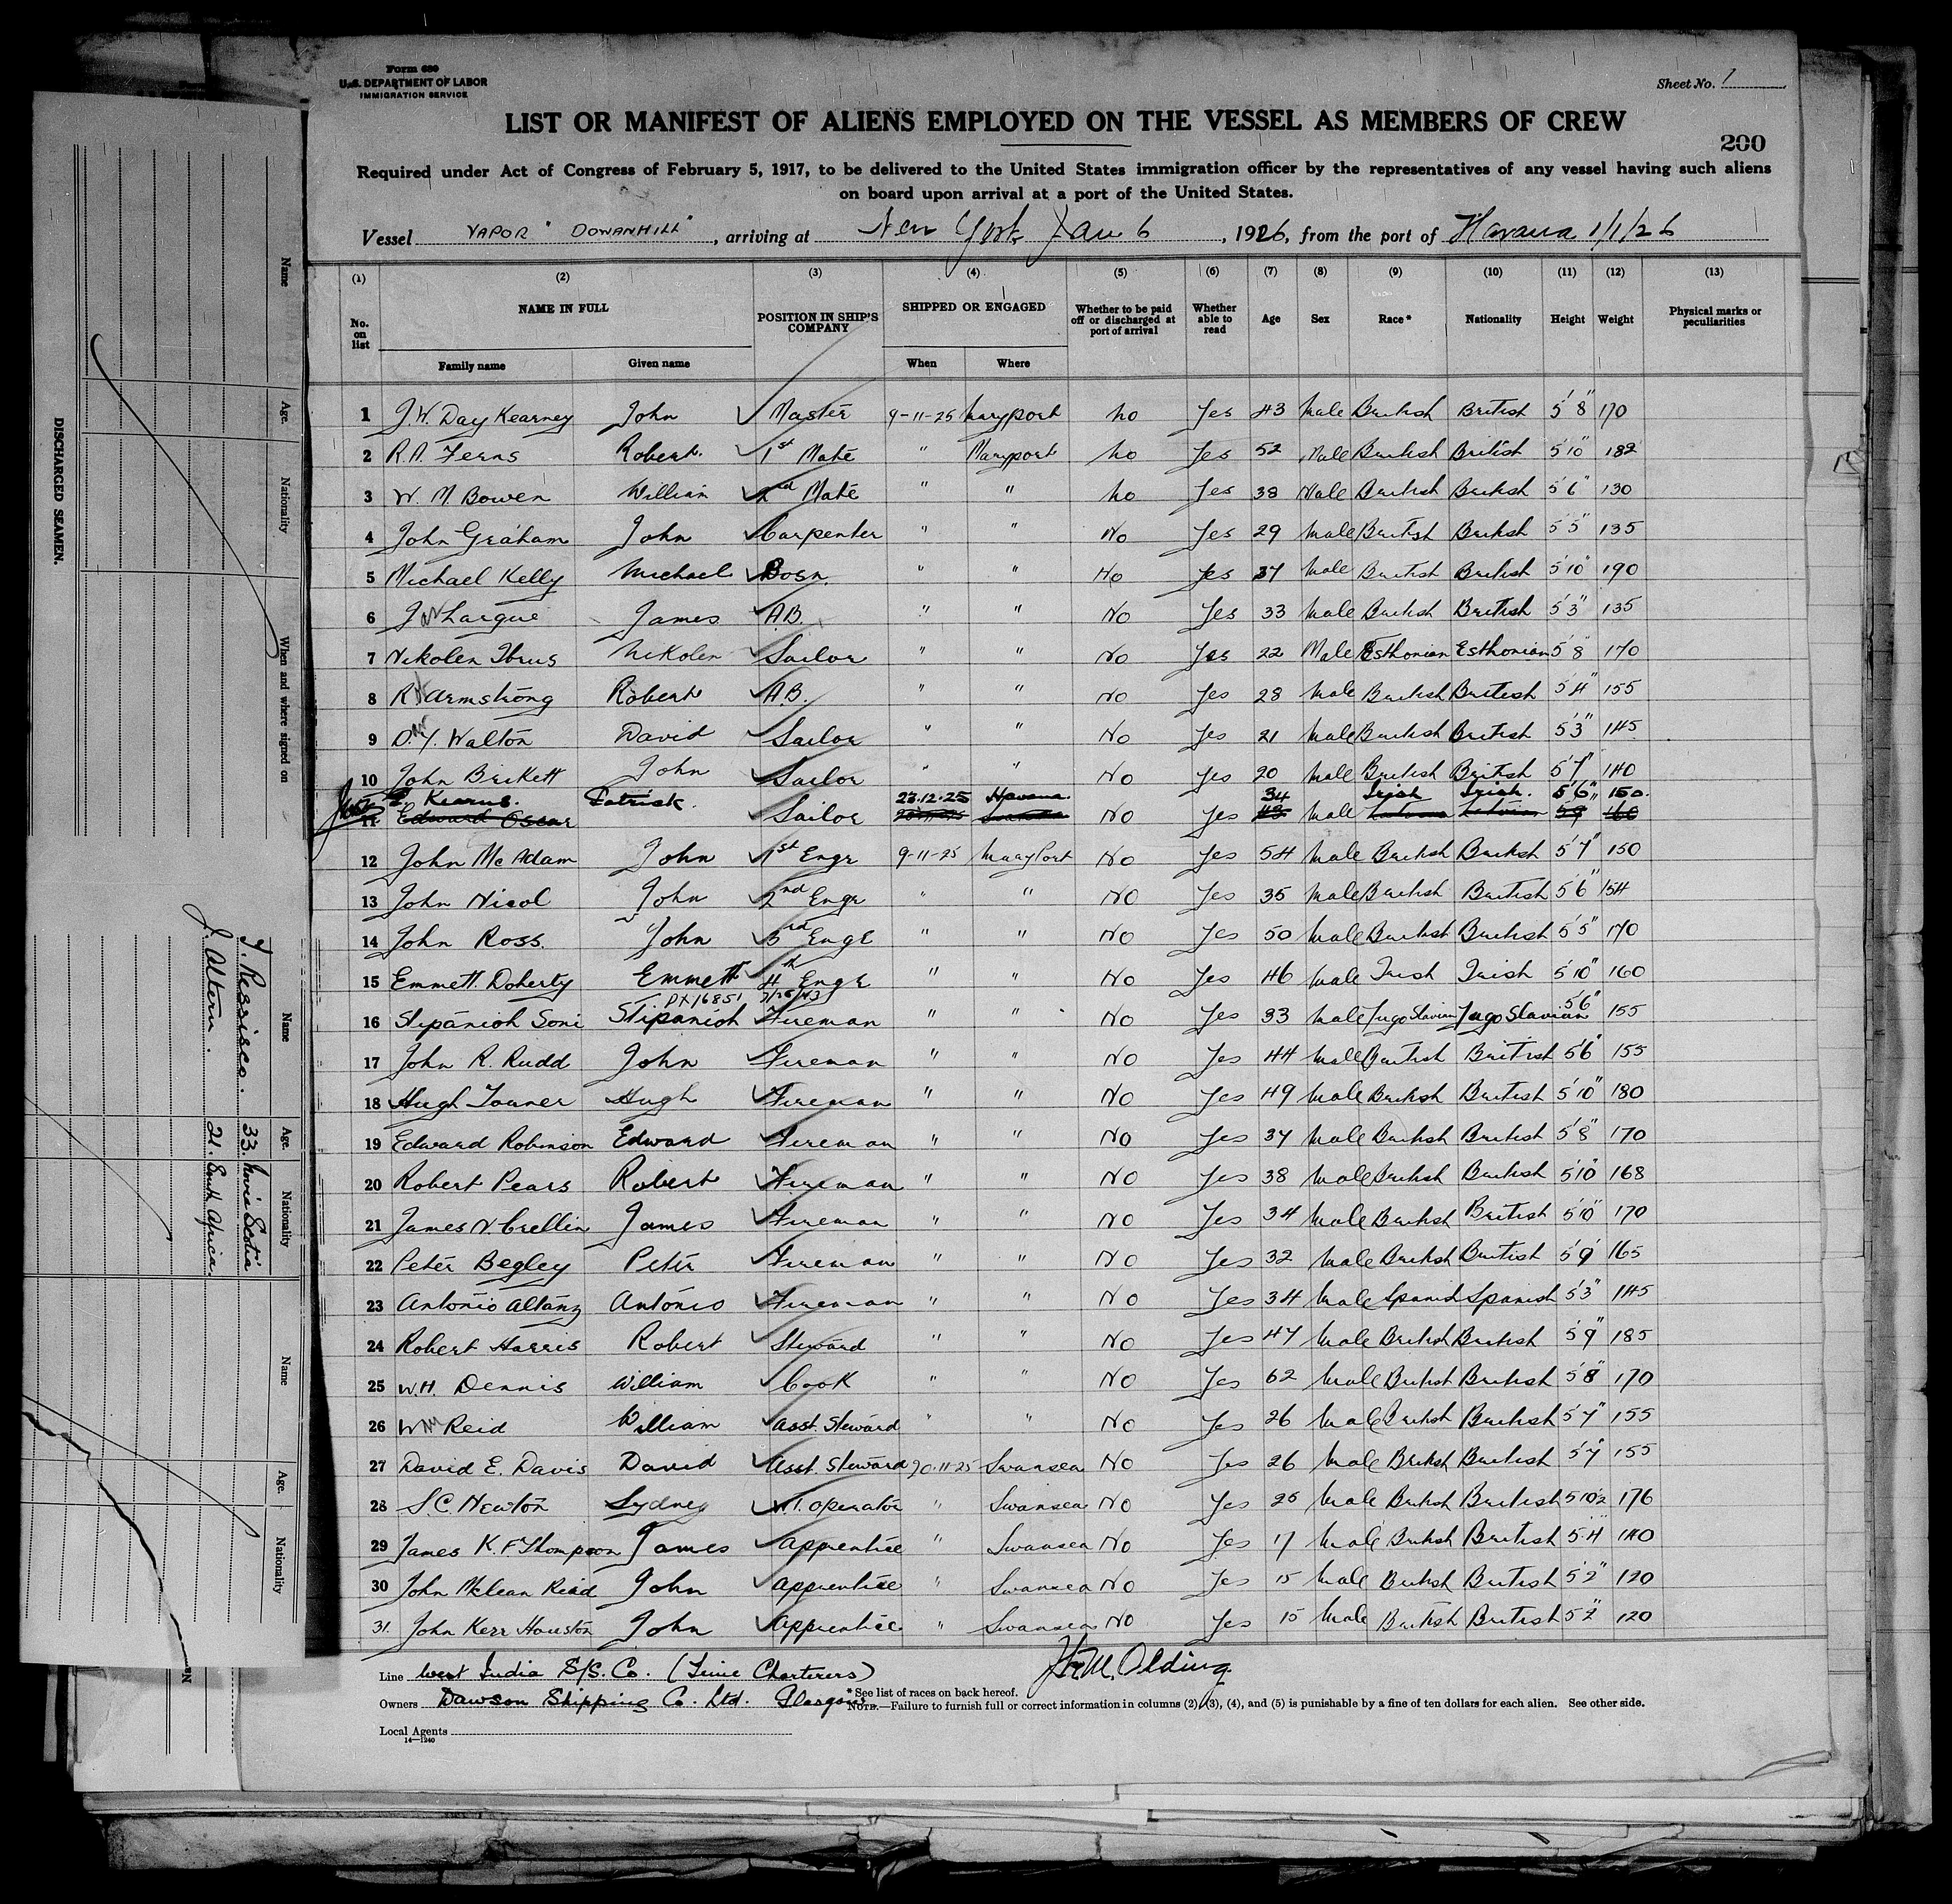 Form 680
U.S. DEPARTMENT OF LABOR
IMMIGRATION SERVICE
Sheet No. 1
LIST OR MANIFEST OF ALIENS EMPLOYED ON THE VESSEL AS MEMBERS OF CREW
200
Required under Act of Congress of February 5, 1917, to be delivered to the United States immigration officer by the representatives of any vessel having such aliens
on board upon arrival at a port of the United States.
Vessel VAPOR "DOWANHILL", arriving at New York Jan 6, 1926, from the port of Havana 1/1/26
(1) (2) (3) (4) (5) (6) (7) (8) (9) (10) (11) (12) (13)
No. on list NAME IN FULL POSITION IN SHIP'S COMPANY SHIPPED OR ENGAGED Whether to be paid off or discharged at port of arrival Whether able to read Age Sex Race* Nationality Height Weight Physical marks or peculiarities
Family name Given name When Where
1 J.W. Day Kearney John Master 9-11-25 Maryport No Yes 43 Male British British 5'8" 170
2 R.A. Ferns Robert 1st Mate " Maryport No Yes 52 Male British British 5'10" 182
3 W. M. Bowen William 2nd Mate " " No Yes 38 Male British British 5'6" 130
4 John Graham John Carpenter " " No Yes 29 Male British British 5'5" 135
5 Michael Kelly Michael Bosn " " No Yes 37 Male British British 5'10" 190
6 J Largue James A.B. " " No Yes 33 Male British British 5'3" 135
7 Nikolen Ibrus Nikolen Sailor " " No Yes 22 Male Esthonian Esthonian 5'8" 170
8 R Armstrong Robert A.B. " " No Yes 28 Male British British 5'4" 155
9 D.Y. Walton David Sailor " " No Yes 21 Male British British 5'3" 145
10 John Brikett John Sailor " " No Yes 20 Male British British 5'7" 140
P. Kearns. Patrick. 23.12.25 Havana 34 Irish Irish. 5'6" 150.
11 Edward Oscar Sailor No Yes Male
12 John Mc Adam John 1st Engr 9-11-25 MaryPort No Yes 54 Male British British 5'7" 150
13 John Nicol John 2nd Engr " " No Yes 35 Male British British 5'6" 154
14 John Ross. John 3rd Engr " " No Yes 50 Male British British 5'5" 170
15 Emmett Doherty Emmett 4th Engr " " No Yes 46 Male Irish Irish 5'10" 160
16 Stipanich Soni Stipanich Fireman " " No Yes 33 Male Jugo Slavian Jugo Slavian 5'6" 155
17 John R. Rudd John Fireman " " No Yes 44 Male British British 5'6" 155
18 Hugh Towner Hugh Fireman " " No Yes 49 Male British British 5'10" 180
19 Edward Robinson Edward Fireman " " No Yes 37 Male British British 5'8" 170
20 Robert Pears Robert Fireman " " No Yes 38 Male British British 5'10" 168
21 James N. Crellin James Fireman " " No Yes 34 Male British British 5'10" 170
22 Peter Begley Peter Fireman " " No Yes 32 Male British British 5'9" 165
23 Antonio Altanz Antonio Fireman " " No Yes 34 Male Spanish Spanish 5'3" 145
24 Robert Harris Robert Steward " " No Yes 47 Male British British 5'9" 185
25 W.H. Dennis William Cook " " No Yes 62 Male British British 5'8" 170
26 Wm Reid William Asst. Steward " " No Yes 26 Male British British 5'7" 155
27 David E. Davis David Asst. Steward 20-11-25 Swansea No Yes 26 Male British British 5'7" 155
28 S.C. Newton Sydney W.T. Operator " Swansea No Yes 25 Male British British 5'10½ 176
29 James K. F Thompson James Apprentice " Swansea No Yes 17 Male British British 5'4" 140
30 John Mclean Reid John Apprentice " Swansea No Yes 15 Male British British 5'2" 120
31. John Kerr Houston John Apprentice " Swansea No Yes 15 Male British British 5'2" 120
Line West India S/S. Co. (Time Charterers)
Owners Dawson Shipping Co. Ltd. Glasgow
* See list of races on back hereof.
NOTE.—Failure to furnish full or correct information in columns (2), (3), (4), and (5) is punishable by a fine of ten dollars for each alien. See other side.
Local Agents
14—1240
DISCHARGED SEAMEN.
Name Age. Nationality When and where signed on
Name Age. Nationality
33. Nova Scotia
J. Altern. 21. South Africa.
Name Age. Nationality